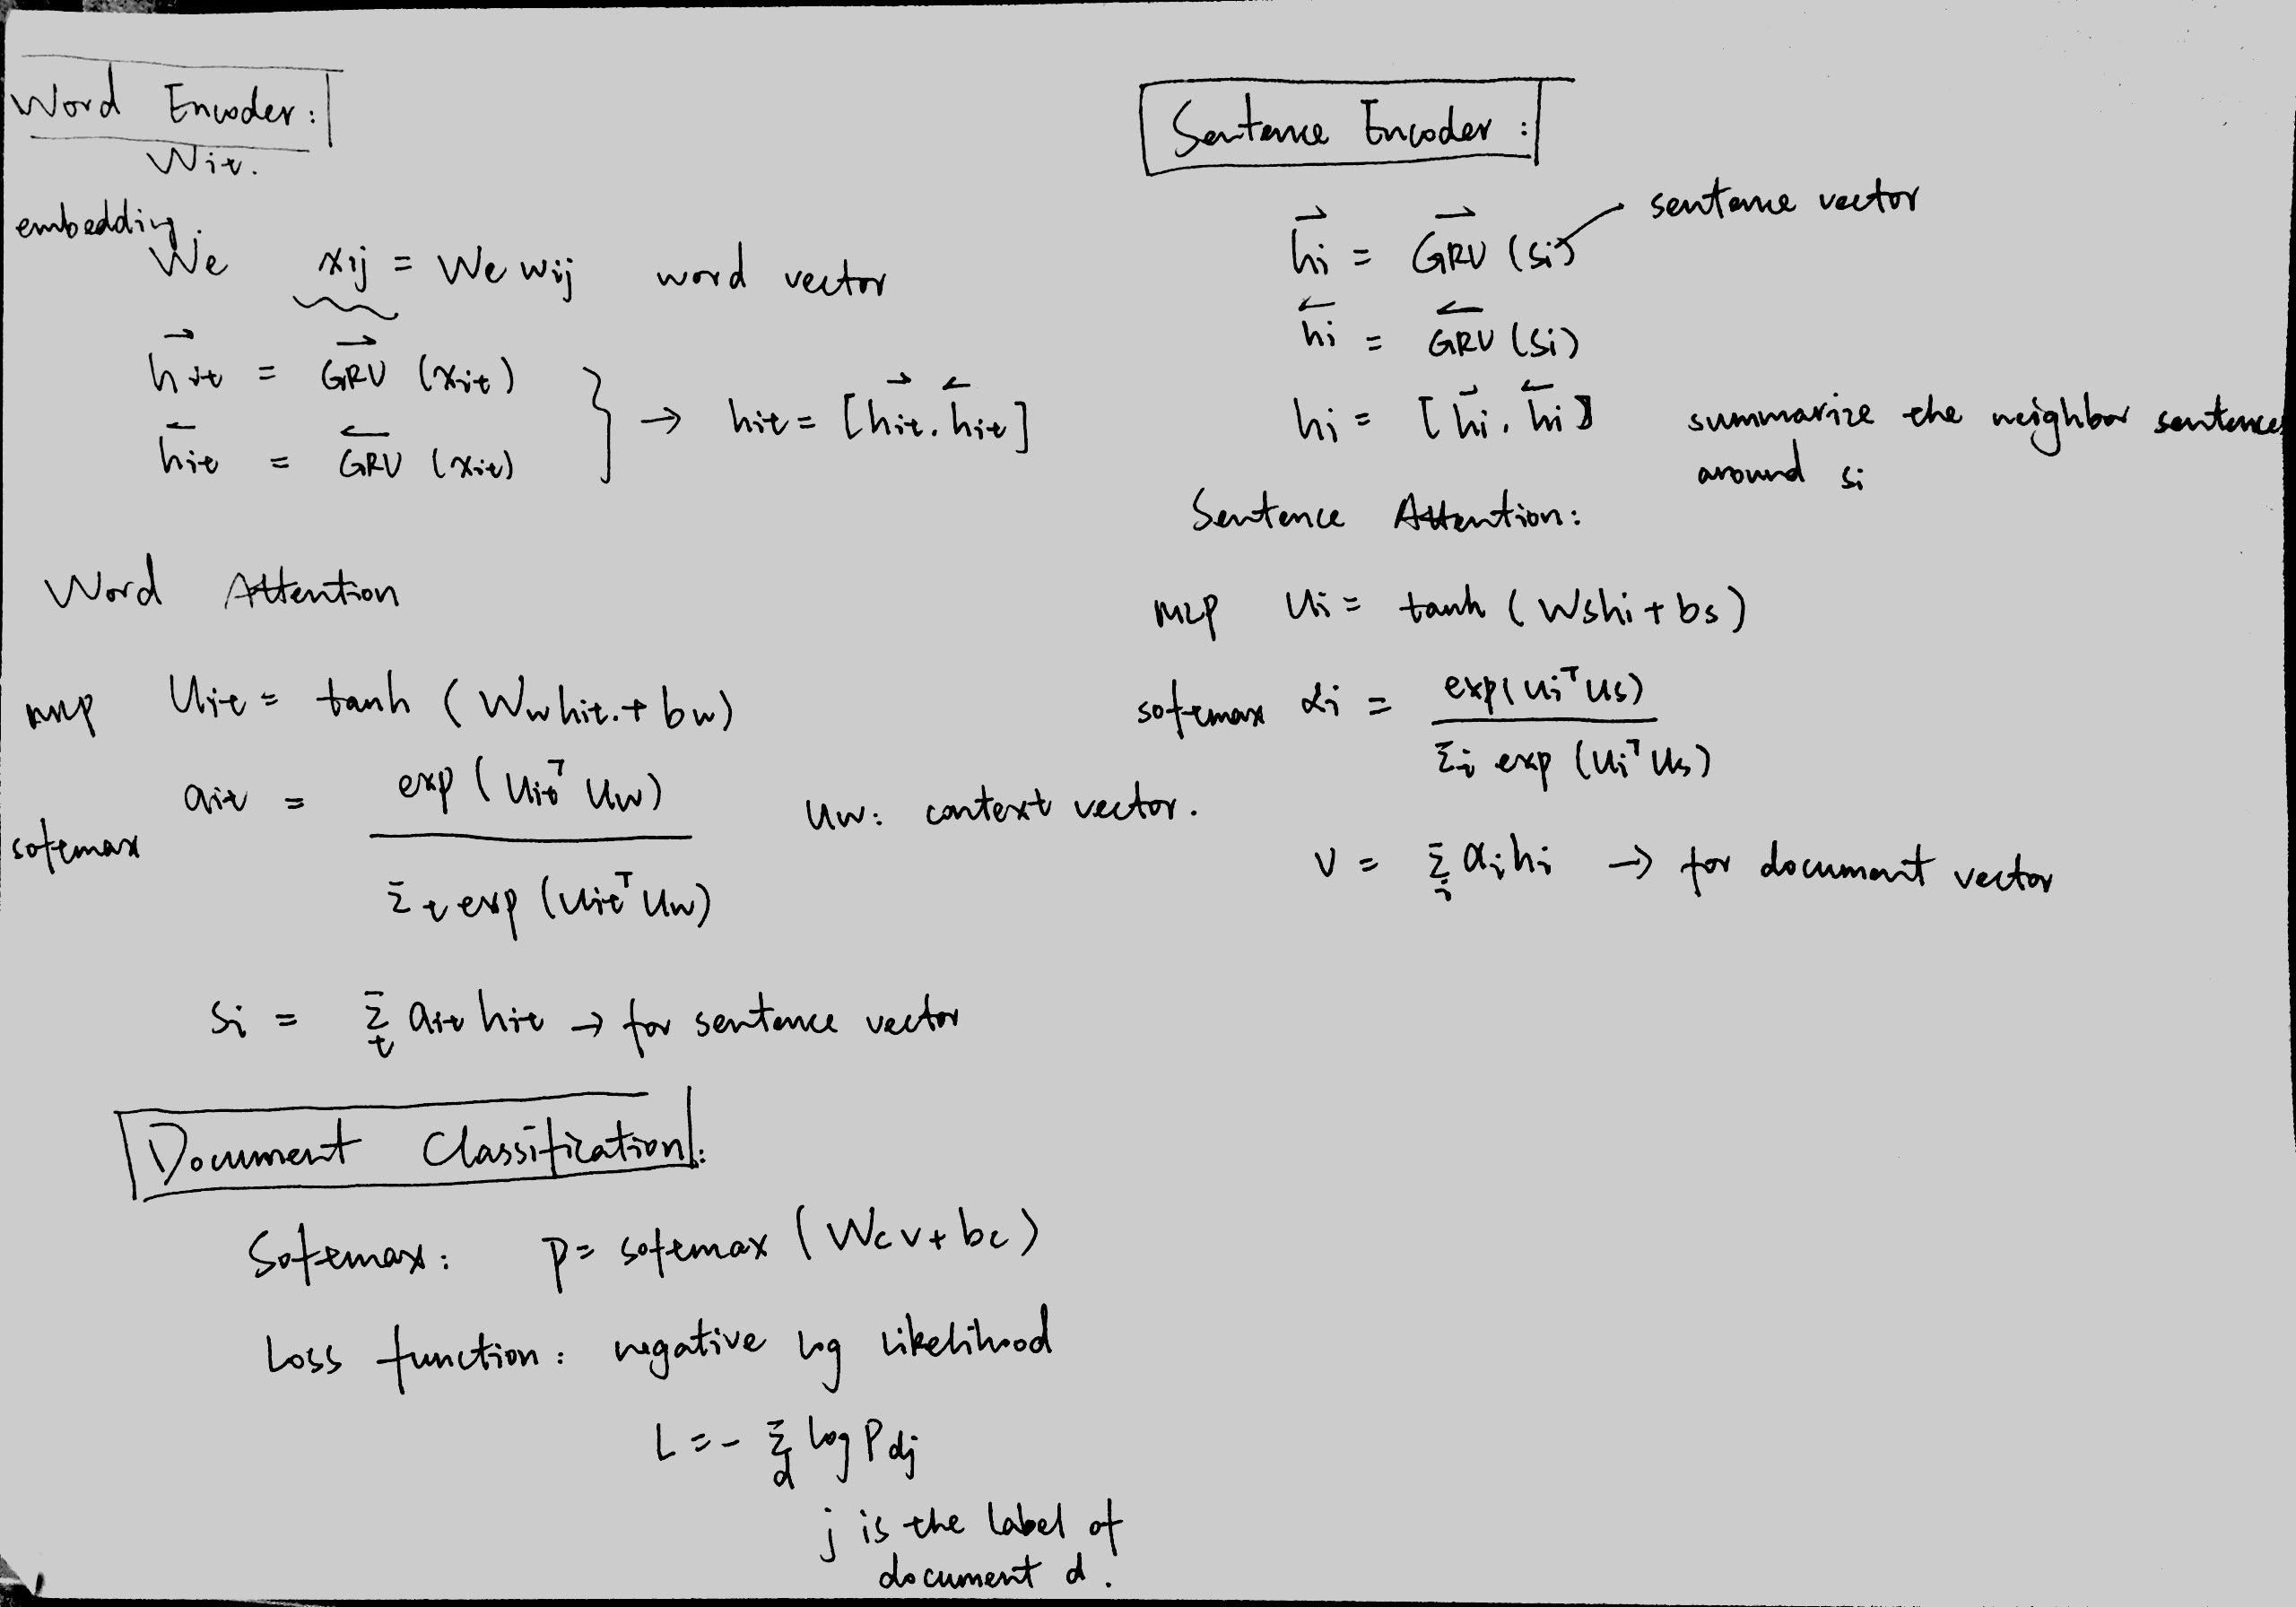 Word Encoder:
Wit.
embedding.
We xij = We wij word vector
→hit = →GRU (xit)
←hit = ←GRU (xit)
} → hit = [→hit. ←hit]
Word Attention
MLP Uit = tanh (Ww hit. + bw)
softmax ait = exp (Uit^T Uw) / Σt exp (Uit^T Uw)
Uw: context vector.
Si = Σt ait hit → for sentence vector
Sentence Encoder:
→hi = →GRU (Si) sentence vector
←hi = ←GRU (Si)
hi = [→hi, ←hi] summarize the neighbor sentences
around si
Sentence Attention:
MLP Ui = tanh (Wshi + bs)
softmax αi = exp(Ui^T Us) / Σi exp (Ui^T Us)
V = Σi αi hi → for document vector
Document Classification:
Softmax: p = softmax (Wcv + bc)
Loss function: negative log likelihood
L = - Σd log Pdj
j is the label of
document d.